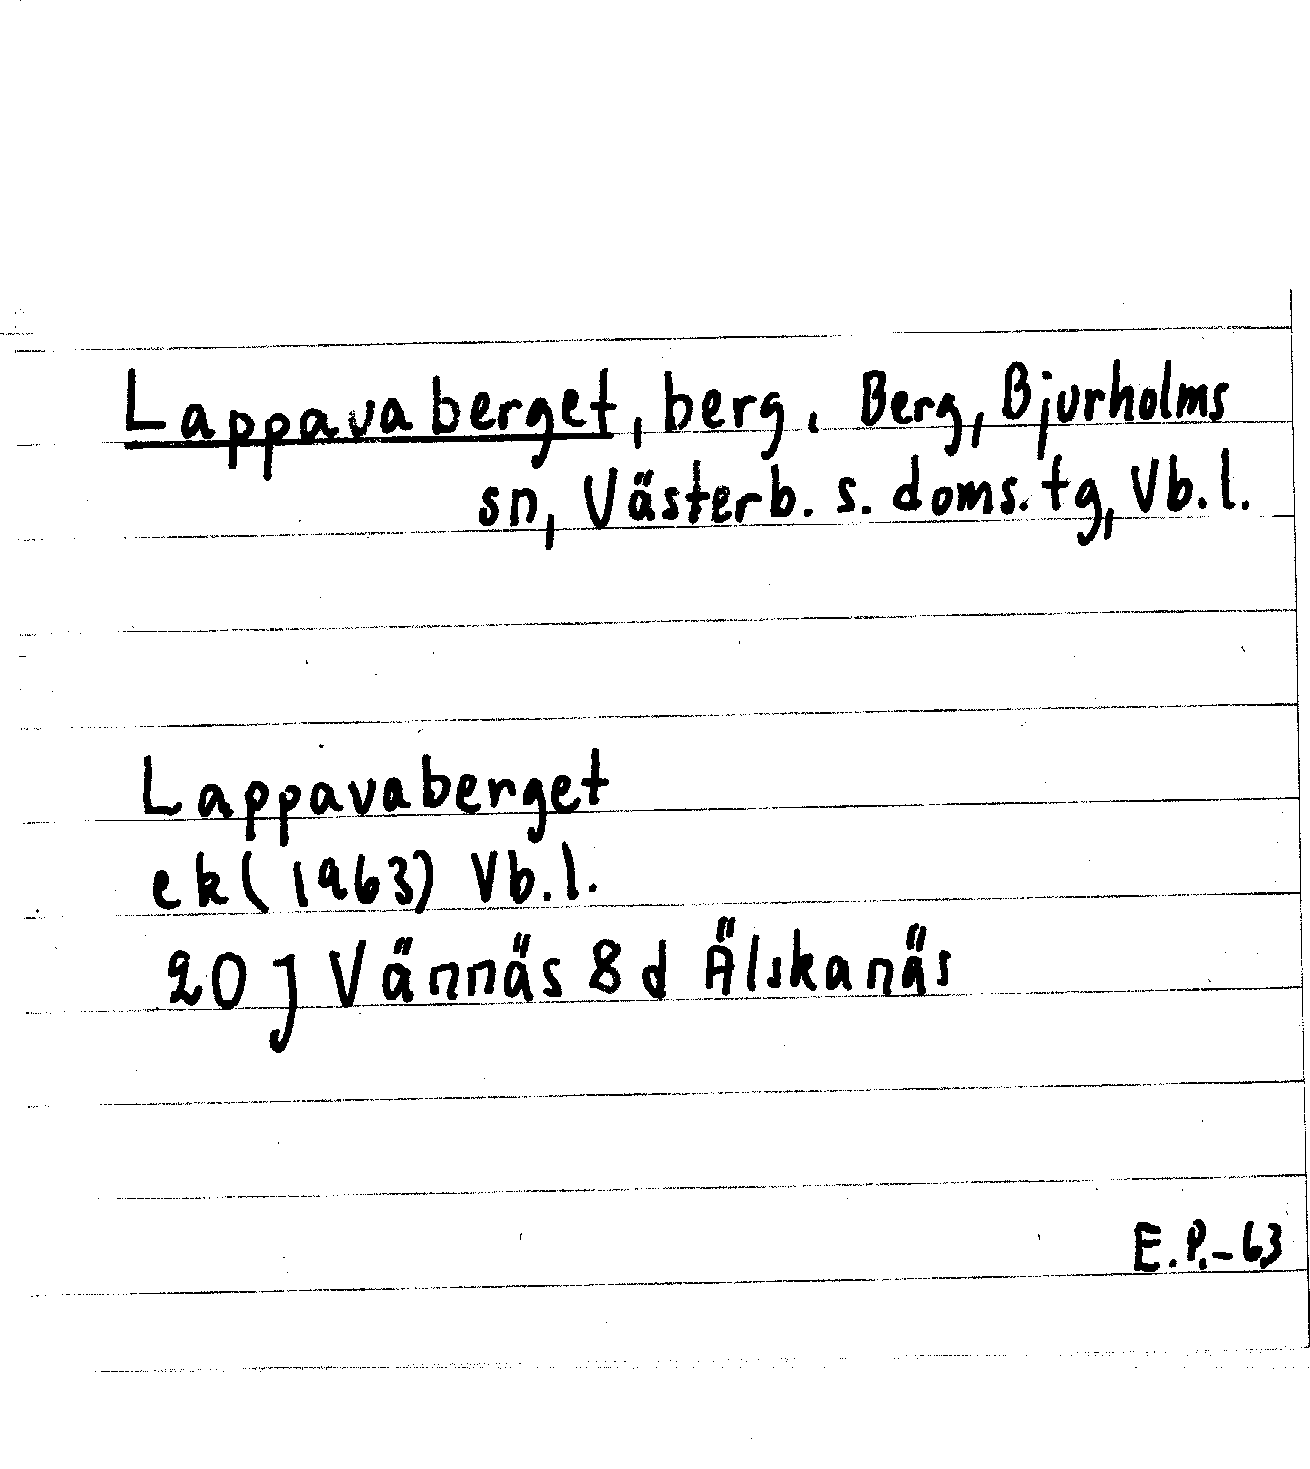 Lappavaberget, berg. Berg, Bjurholms
sn, Västerb. s. doms. tg, Vb. l.
Lappavaberget
ek (1963) Vb. l.
20 J Vännäs 8 d Älskanäs
E. P. - 63